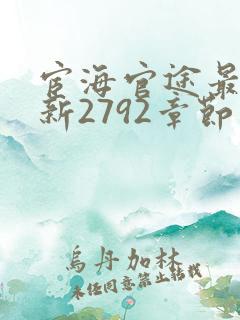 宦海官途最
新2792章节
乌丹加林
未经同意禁止转载